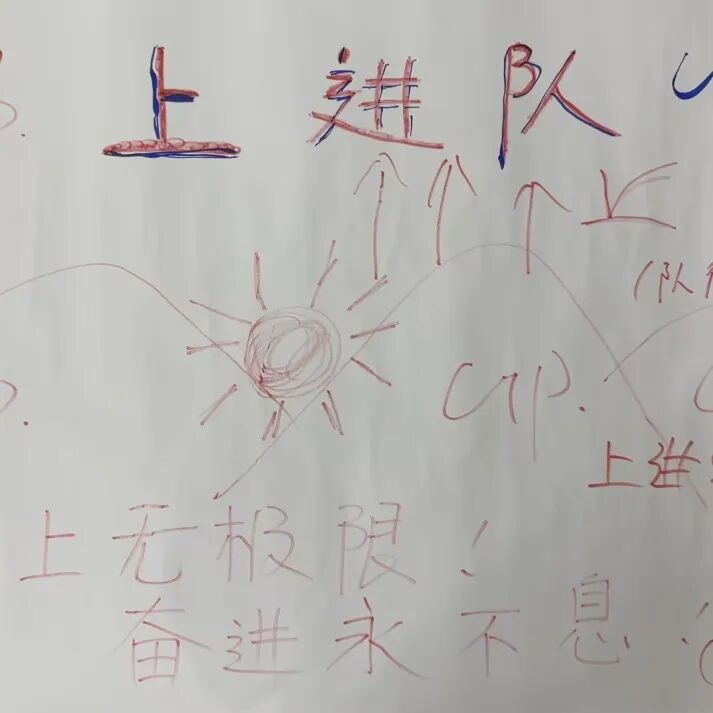 上进队
(队
up.
上进
上无极限！
奋进永不息！